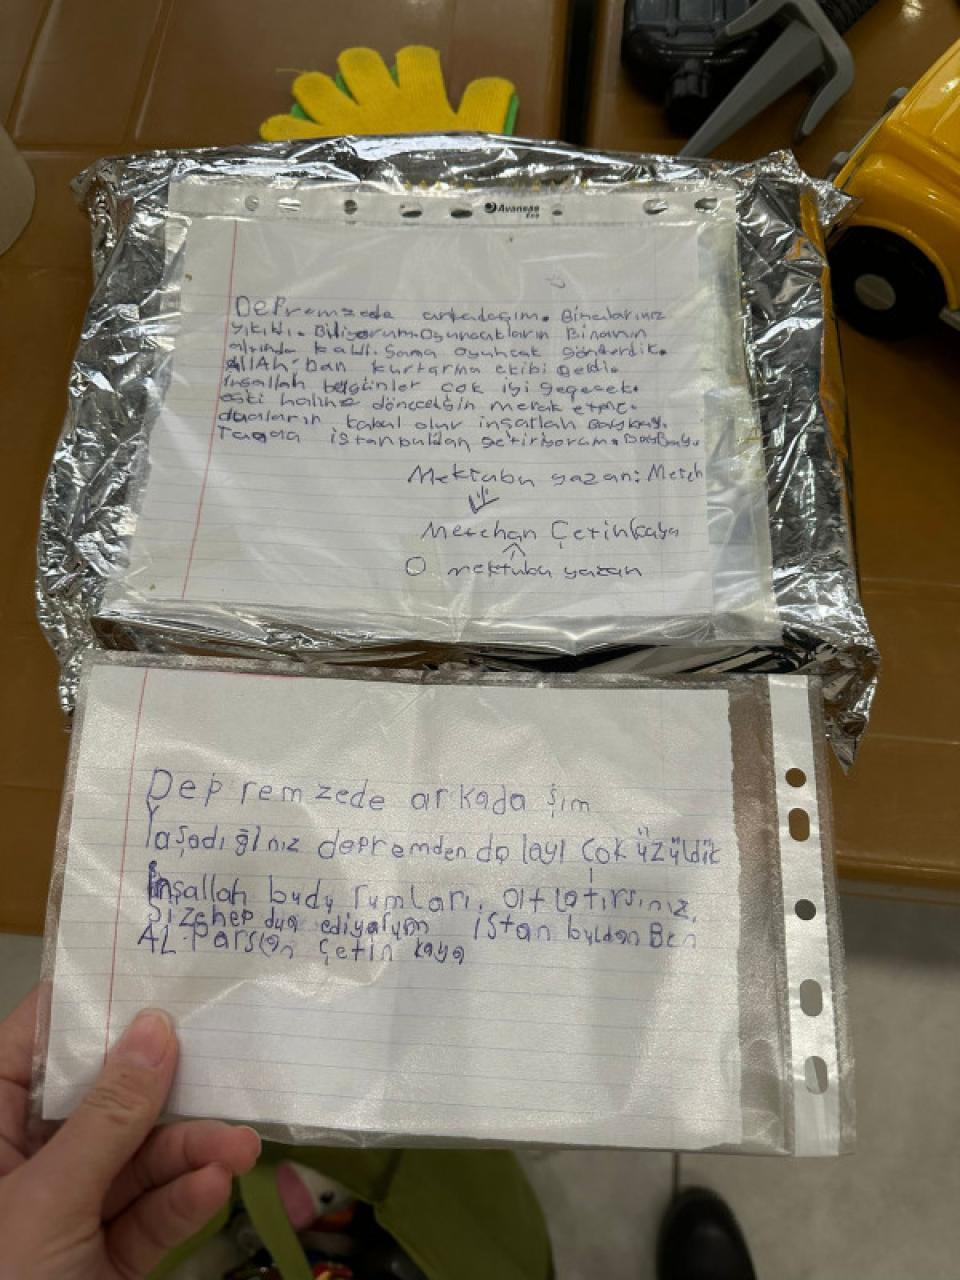 Avansas
Eco
Depremzede arkadaşım. Binalarınız
yıkıldı. Biliyorum Oyuncakların Binanın
altında kaldı. Sana oyuncak gönderdik.
AllAh'dan kurtarma ekibi geldi.
inşallah bugünler çok iyi geçecek.
eski haline döneceksin merak etme.
duaların kabul olur inşallah baybay.
istanbuldan getiriyorum. Baybay.
Mektubu yazan: Meteh
Metehan Çetinkaya
O mektubu yazan
Depremzede arkadaşım
Yaşadığınız depremden dolayı çok üzüldük
İnşallah budu rumları. atlatırsınız.
Sizehep dua ediyorum istanbuldan Ben
ALParslan Çetin kaya